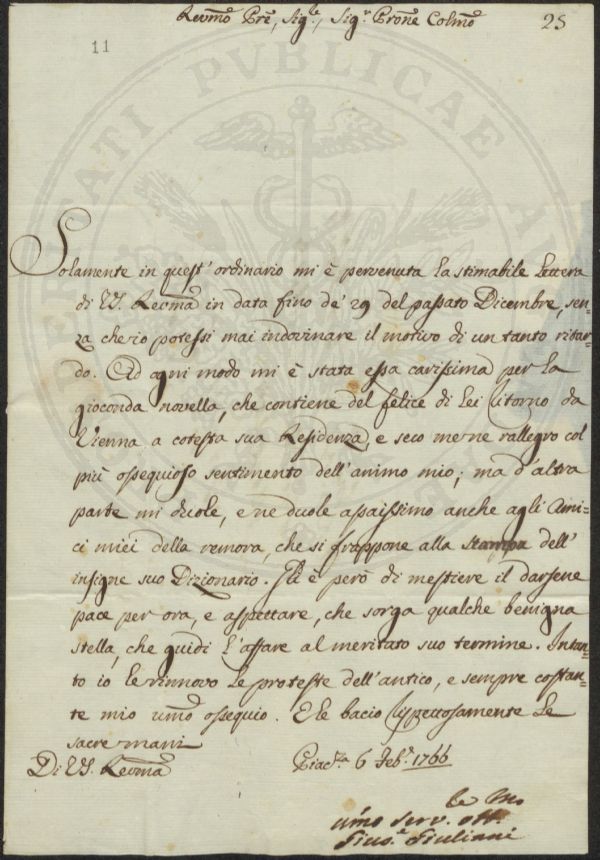 Rev̄mo Prē, Sig.re, Sig.r Prōne Colmō
25
11
PUBLICAE
Solamente in quest' ordinario mi è pervenuta la stimabile Lettera
di VS. Revmā in data fino de' 29 del passato Dicembre, sen=
za che io potessi mai indovinare il motivo di un tanto ritar=
do. Ad ogni modo mi è stata essa carissima per la
gioconda novella, che contiene del felice di Lei ritorno da
Vienna a cotesta sua Residenza, e seco me ne rallegro col
più ossequioso sentimento dell'animo mio; ma d'altra
parte mi duole, e ne duole assaissimo anche agli Ami=
ci miei della remora, che si frappone alla stampa dell'
insigne suo Dizionario. Gli è però di mestiere il darsene
pace per ora, e aspettare, che sorga qualche benigna
stella, che guidi l'affare al meritato suo termine. Intan=
to io le rinnovo le proteste dell'antico, e sempre costan=
te mio umō ossequio. E le bacio rispettosamente le
sacre mani
Di VS. Revmā
Piac.za 6 Feb.o 1766
umō serv. obb.
Giuliani